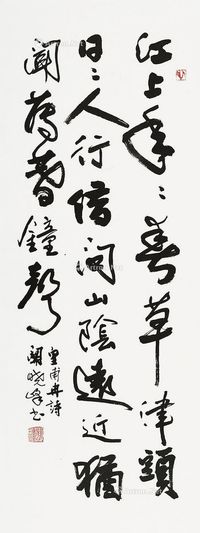 江上年〻春草津頭
日〻人行借问山陰遠近猶
聞薄暮鐘聲
皇甫冉詩
曉峰书